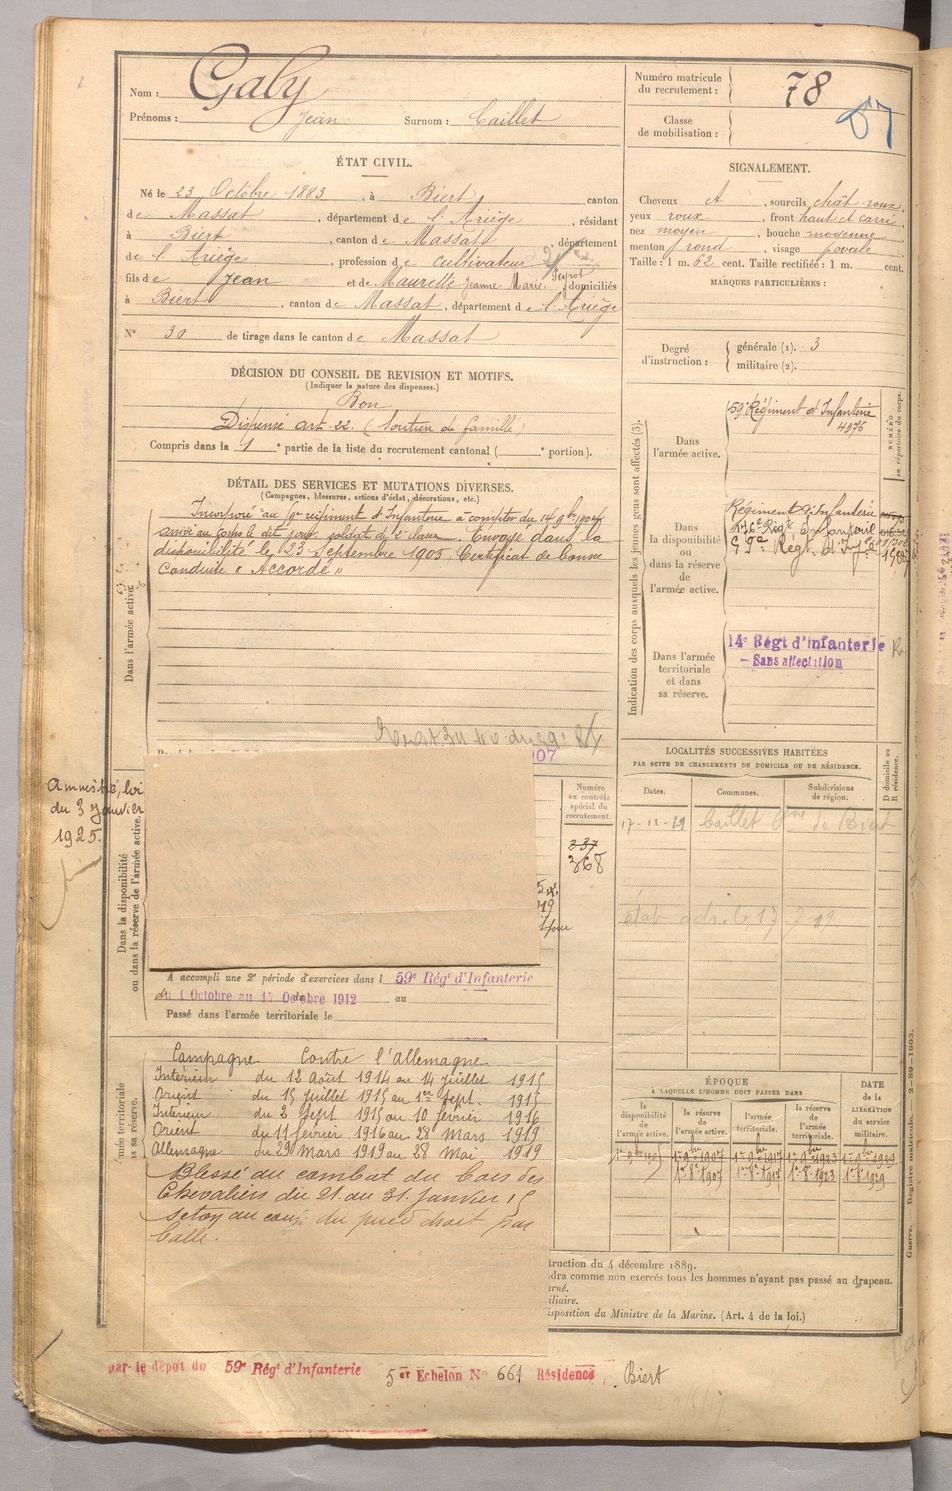 Nom : Galy
Prénoms : Jean Surnom : Caillet
Numéro matricule du recrutement : 78
Classe de mobilisation :
ÉTAT CIVIL.
Né le 23 Octobre 1883, à Biert canton
de Massat, département de l'Ariège, résidant
à Biert, canton de Massat, département
de l'Ariège, profession de cultivateur
fils de Jean et de Maurette Jeanne Marie domiciliés
à Biert, canton de Massat, département de l'Ariège
N° 30 de tirage dans le canton de Massat
SIGNALEMENT.
Cheveux, sourcils chât-roux,
yeux roux, front haut et carré
nez moyen, bouche moyenne
menton rond, visage ovale
Taille : 1 m. 62 cent. Taille rectifiée : 1 m. cent.
MARQUES PARTICULIÈRES :
Degré d'instruction : générale (1). 3
militaire (2).
DÉCISION DU CONSEIL DE REVISION ET MOTIFS.
(Indiquer la nature des dispenses.)
Bon
Dispensé art. 22. (Soutien de famille)
Compris dans la partie de la liste du recrutement cantonal ( portion).
DÉTAIL DES SERVICES ET MUTATIONS DIVERSES.
(Campagnes, blessures, actions d'éclat, décorations, etc.)
Incorporé au régiment d'Infanterie à compter du 14 9bre 1904
arrivé au corps le dit jour, soldat de 2e classe. Envoyé dans la
disponibilité le 23 Septembre 1905 Certificat de bonne
Conduite « Accordé »
Dans l'armée active.
Indication des corps auxquels les jeunes gens sont affectés (3).
NUMÉRO au répertoire du corps.
Dans l'armée active.
59e Régiment d'Infanterie
4976
Dans la disponibilité ou dans la réserve de l'armée active.
Régiment d'Infanterie
59e Régt d'Infie
Dans l'armée territoriale et dans sa réserve.
14e Régt d'infanterie
- Sans affectation
07
Amnistié, loi
du 3 Janvier
1925.
Dans la disponibilité ou dans la réserve de l'armée active.
Numéro au contrôle spécial du recrutement.
237
368
LOCALITÉS SUCCESSIVES HABITÉES
PAR SUITE DE CHANGEMENTS DE DOMICILE OU DE RÉSIDENCE.
D domicile ou R résidence.
Dates. Communes. Subdivisions de région.
17-11-29 Caillet Biert
A accompli une 2e période d'exercices dans l 59e Régt d'Infanterie
du 1 Octobre au 17 Octobre 1912 au
Passé dans l'armée territoriale le
Campagne Contre l'Allemagne
Intérieur du 12 Août 1914 au 14 juillet 1915
Orient du 15 juillet 1915 au 1er Sept. 1915
Intérieur du 2 Sept 1915 au 10 février 1916
Orient du 11 février 1916 au 28 Mars 1919
Allemagne du 29 Mars 1919 au 28 Mai 1919
Blessé au combat du bois des
Chevaliers du 21 au 31 Janvier 15
Seton au cou du pied droit par
balle.
ÉPOQUE
À LAQUELLE L'HOMME DOIT PASSER DANS
DATE DE LA LIBÉRATION du service militaire.
la disponibilité de l'armée active. la réserve de l'armée active. l'armée territoriale. la réserve de l'armée territoriale.
1er 9bre 1905 1er 9bre 1907 1er 9bre 1917 1er 9bre 1923 1er 9bre 1929
1er 8bre 1907 1er 8bre 1917 1er 8bre 1923 1er 8bre 1929
truction du 4 décembre 1889.
dra comme non exercés tous les hommes n'ayant pas passé au drapeau.
urné.
iliaire.
isposition du Ministre de la Marine. (Art. 4 de la loi.)
par le dépot du 59e Régt d'Infanterie 5 er Echelon N° 661 Résidence Biert